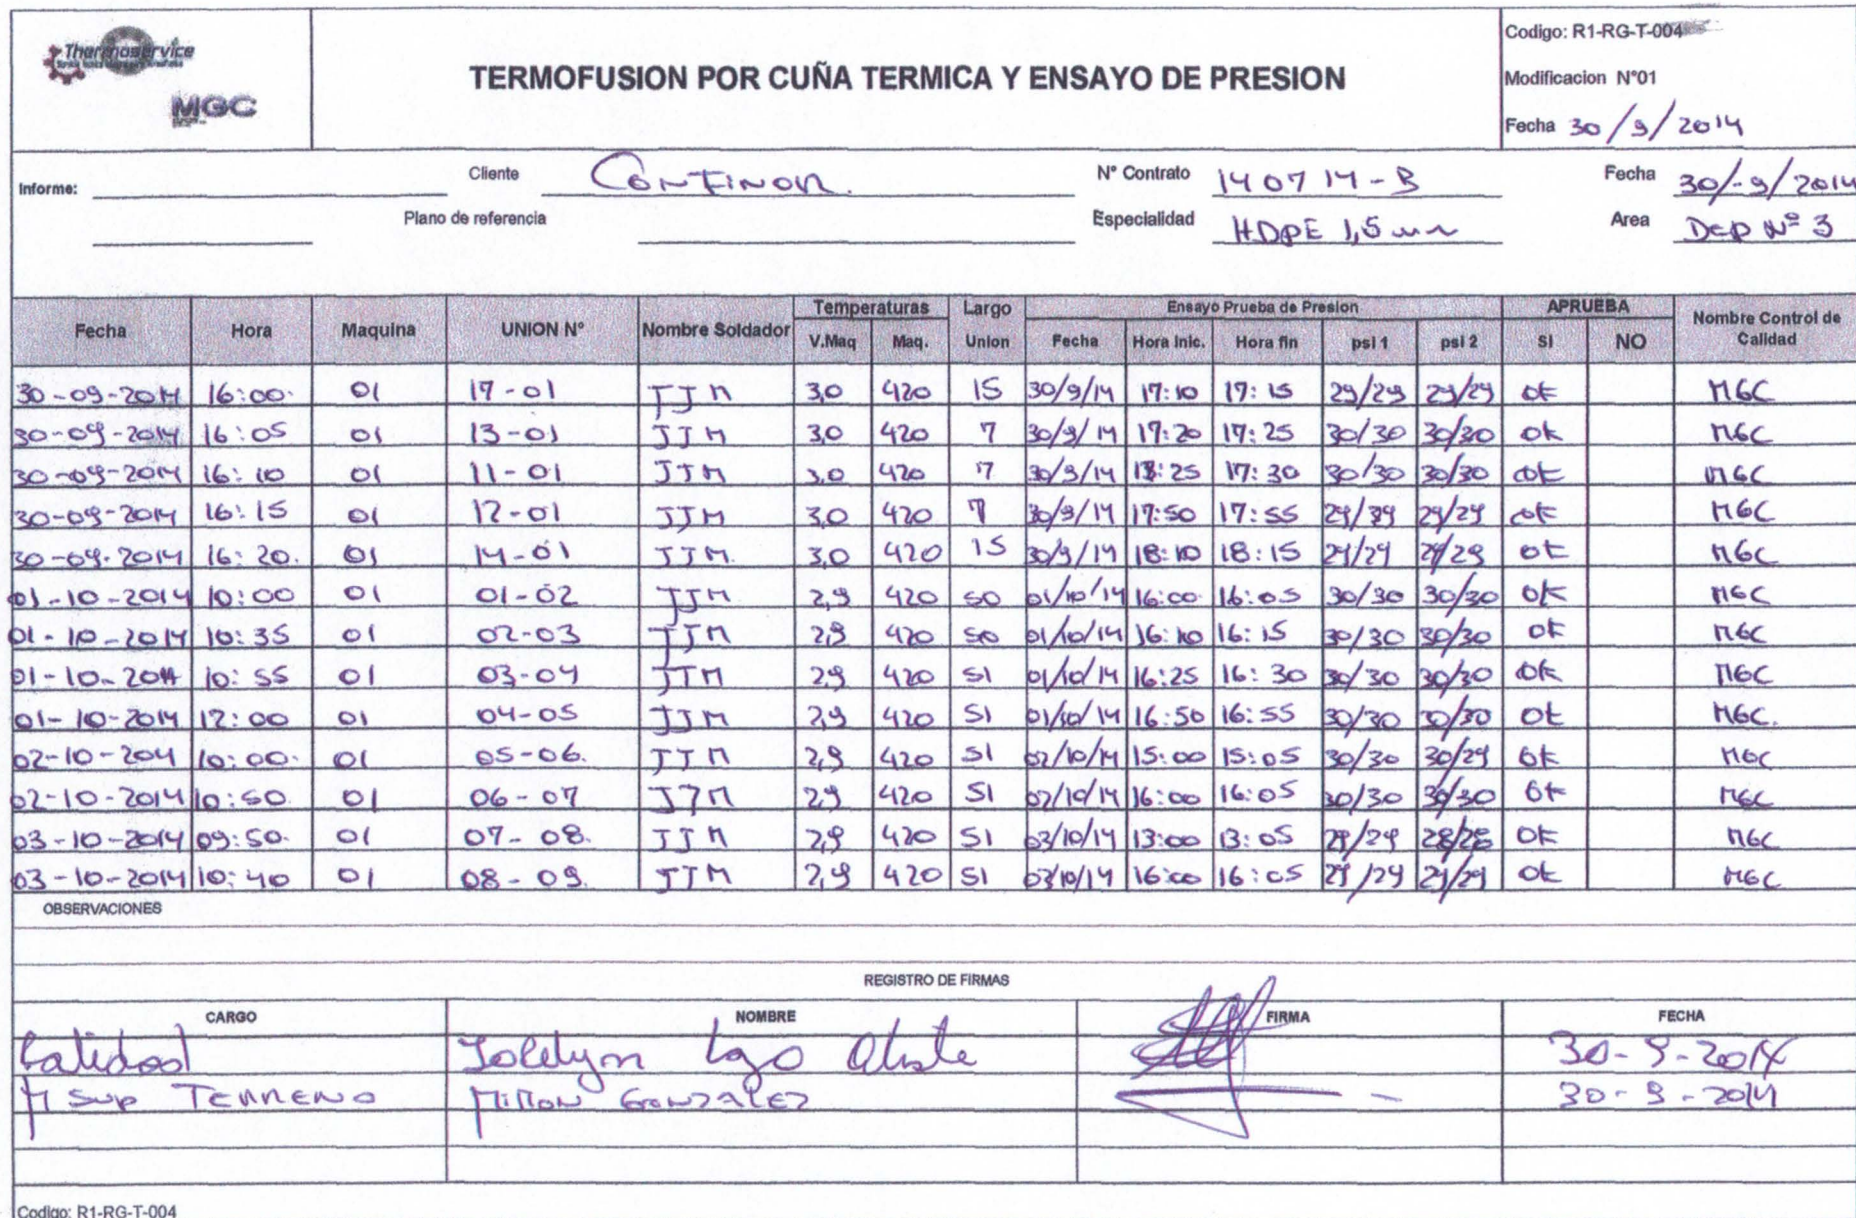 Thermoservice
MGC
TERMOFUSION POR CUÑA TERMICA Y ENSAYO DE PRESION
Codigo: R1-RG-T-004
Modificacion N°01
Fecha 30/9/2014
Informe:
Cliente CONTINOR.
N° Contrato 140714-B
Fecha 30/-9/2014
Plano de referencia
Especialidad HDPE 1,5 mm
Area Dep Nº 3
Fecha Hora Maquina UNION N° Nombre Soldador Temperaturas V.Maq Maq. Largo Union Ensayo Prueba de Presion Fecha Hora Inic. Hora fin psi 1 psi 2 APRUEBA SI NO Nombre Control de Calidad
30-09-2014 16:00. 01 17-01 JJM 3,0 420 15 30/9/14 17:10 17:15 29/29 29/29 ok MGC
30-09-2014 16:05 01 13-01 JJM 3,0 420 7 30/9/14 17:20 17:25 30/30 30/30 ok MGC
30-09-2014 16:10 01 11-01 JJM 3,0 420 7 30/9/14 17:30 30/30 30/30 ok MGC
30-09-2014 16:15 01 12-01 JJM 3,0 420 7 30/9/14 17:50 17:55 29/29 ok MGC
30-09-2014 16:20. 01 14-01 JJM. 3,0 420 15 30/9/14 18:10 18:15 29/29 29/29 ok MGC
01-10-2014 10:00 01 01-02 JJM 2,9 420 50 01/10/14 16:00 16:05 30/30 30/30 ok MGC
01-10-2014 10:35 01 02-03 JJM 2,9 420 50 01/10/14 16:10 16:15 30/30 30/30 ok MGC
01-10-2014 10:55 01 03-04 JJM 2,9 420 51 01/10/14 16:25 16:30 30/30 30/30 ok MGC
01-10-2014 12:00 01 04-05 JJM 2,9 420 51 01/10/14 16:50 16:55 30/30 30/30 ok MGC.
02-10-2014 10:00. 01 05-06. JJM 2,9 420 51 02/10/14 15:00 15:05 30/30 30/29 ok MGC
02-10-2014 10:50 01 06-07 JJM 2,9 420 51 02/10/14 16:00 16:05 30/30 30/30 ok MGC
03-10-2014 09:50. 01 07-08. JJM 2,9 420 51 03/10/14 13:00 13:05 29/29 28/28 ok MGC
03-10-2014 10:40 01 08-09. JJM 2,9 420 51 03/10/14 16:00 16:05 29/29 29/29 ok MGC
OBSERVACIONES
REGISTRO DE FIRMAS
CARGO NOMBRE FIRMA FECHA
Calidad Jocelyn 30-9-2014
Sup TERRENO GONZALEZ 30-9-2014
Codigo: R1-RG-T-004